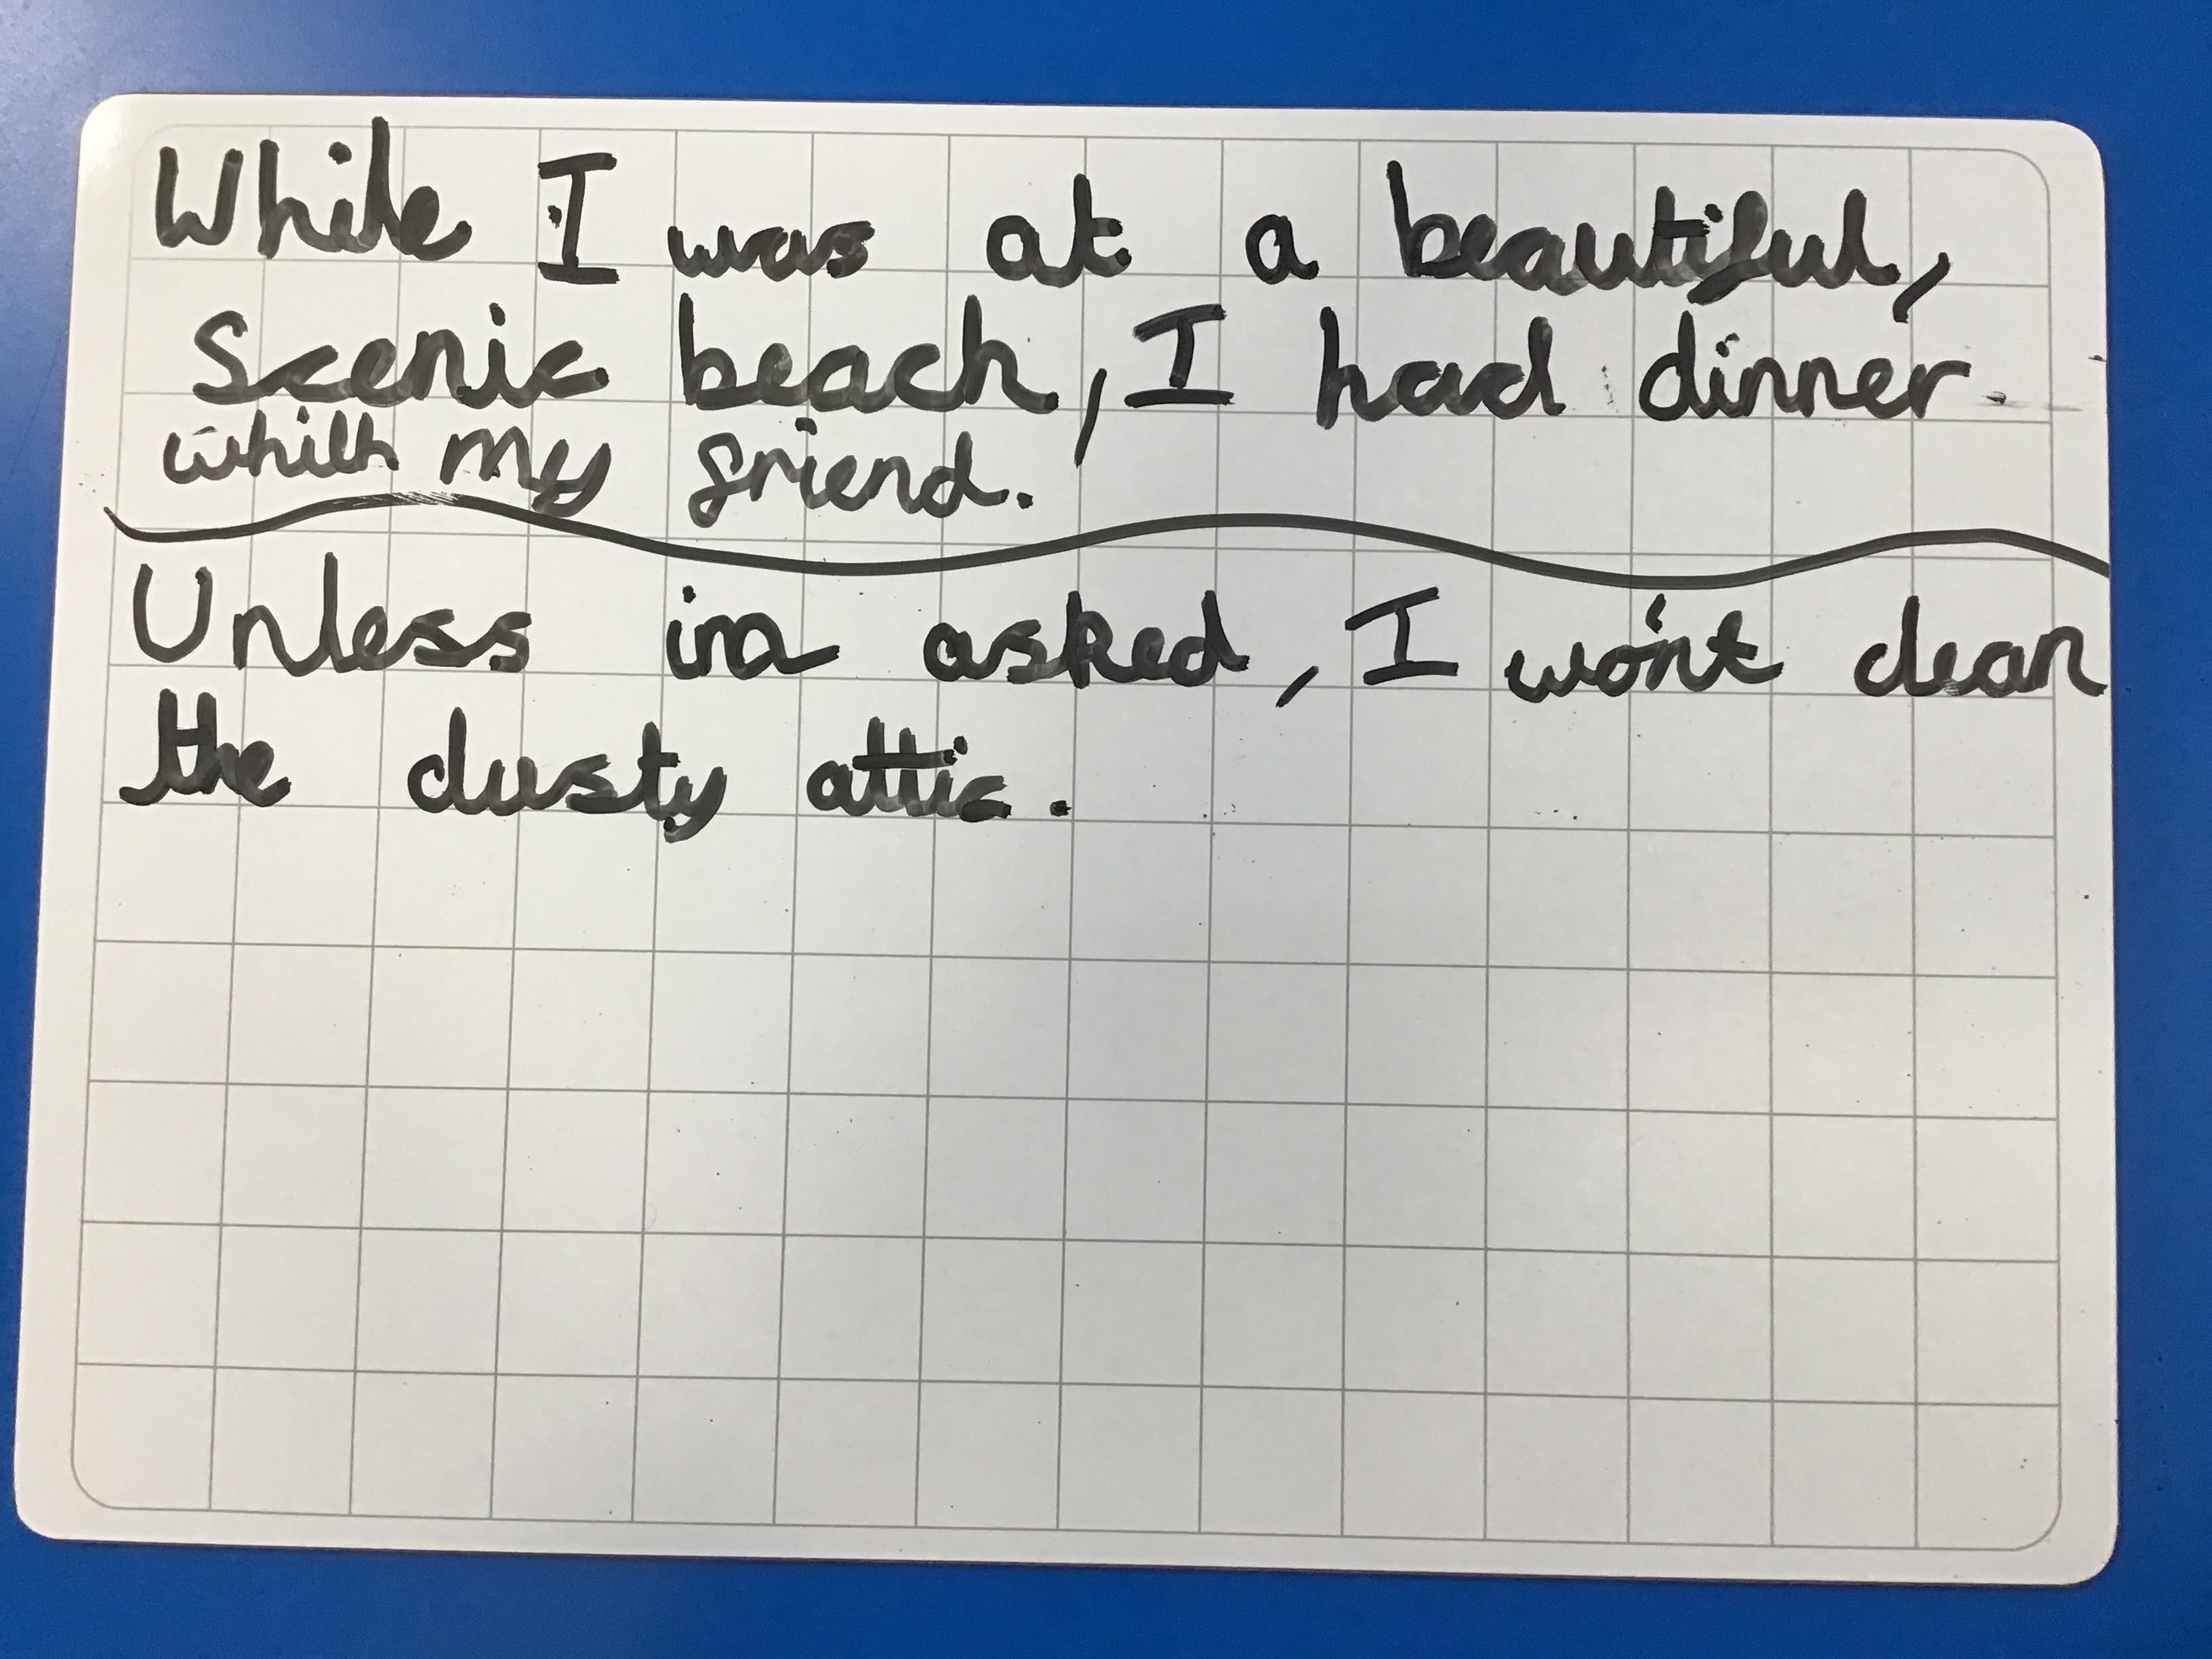 While I was at a beautiful,
scenic beach, I had dinner
whith my friend.
Unless im asked, I won't clean
the dusty attic.